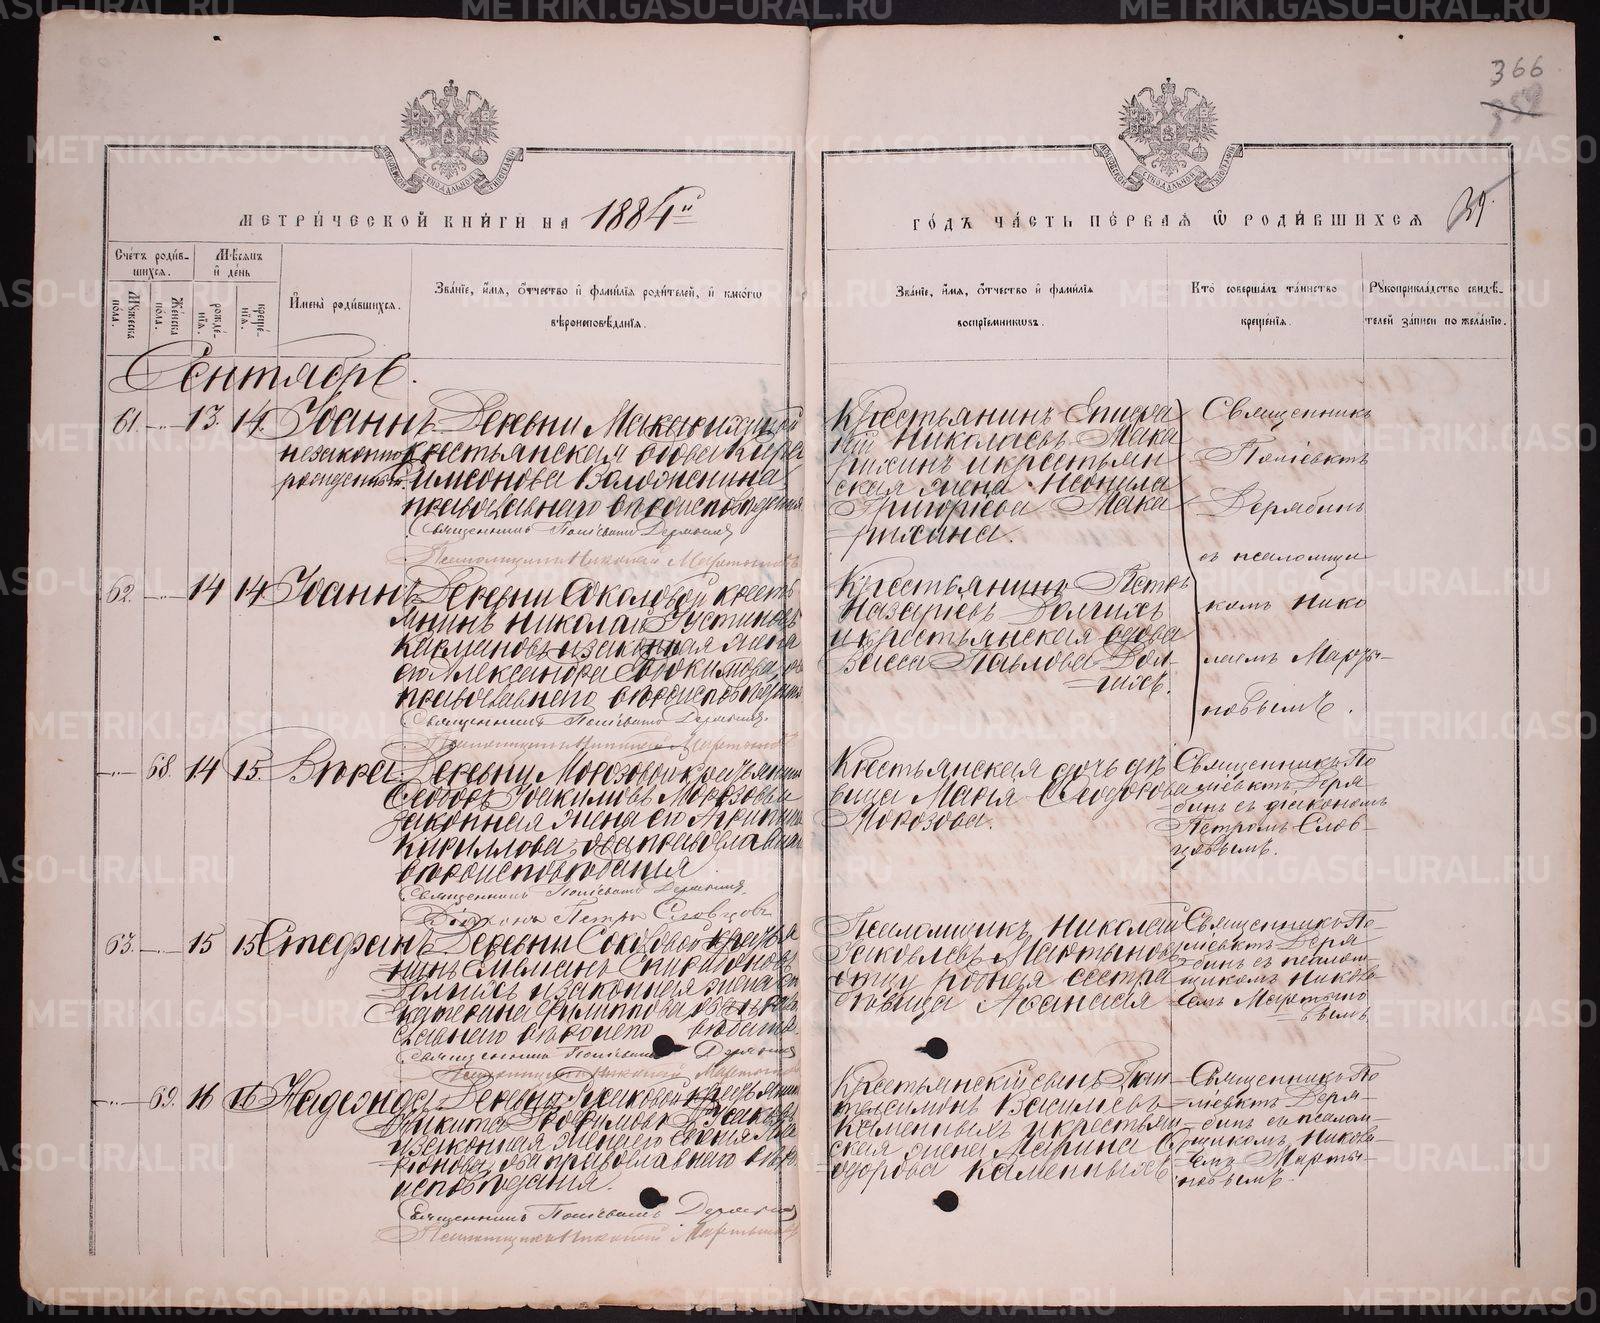 METRIKI.GASO-URAL.RU
366
МЕТРИ́ЧЕСКОЙ КНИ́ГИ НА 1884й
ГО́ДЪ ЧА́СТЬ ПЕ́РВАЯ Ѿ РОДИ́ВШИХСЯ 39.
Сче́тъ роди́в-
шихся.
Му́жеска пола.
Же́нска пола.
Мѣ́сяцъ
и де́нь
рожде́-
нія.
креще́-
нія.
И́мена роди́вшихся.
Зва́ніе, и́мя, о́тчество и фами́лія роди́телей, и како́гѡ
вѣроисповѣ́данія.
Зва́ніе, и́мя, о́тчество и фами́лія
воспріе́мниковъ.
Кто́ соверша́лъ та́инство
креще́нія.
Рукоприкла́дство свидѣ́-
телей за́писи по жела́нію.
Сентябрь.
61. 13. 14. Іоаннъ
незаконно
рожденный
Деревни
крестьянская вдова
православнаго вѣроисповѣданія
Священникъ Поліевктъ Дерябинъ
Псаломщикъ Николай Мартыновъ
Крестьянинъ
Николаевъ Мака
рихинъ и крестьян
ская жена Неонила
Григорьева Мака
рихина.
Священникъ
Поліевктъ
Дерябинъ
съ псаломщи
комъ Нико
лаемъ Марты-
новымъ.
62. 14 14 Іоаннъ
Деревни Соколовой кресть
янинъ Николай Іустиновъ
и законная жена
его Александра Евдокимова, оба
православнаго вѣроисповѣданія
Священникъ Поліевктъ Дерябинъ.
Псаломщикъ Николай Мартыновъ
Крестьянинъ Петръ
Назарьевъ Долгихъ
и крестьянская вдова
Васса Павлова Дол-
гихъ.
68. 14 15. Вѣра.
Деревни Морозовой крестьянинъ
Ѳеодоръ Іоакимовъ Морозовъ и
законная жена его
Кириллова, оба православнаго
вѣроисповѣданія
Священникъ Поліевктъ Дерябинъ.
Діаконъ Петръ Словцовъ
Крестьянская дочь дѣ
вица Марія Ѳеодорова
Морозова.
Священникъ По
ліевктъ Деря
бинъ съ діакономъ
Петромъ Слов-
цовымъ.
63. 15 15 Стефанъ
Деревни крестья
нинъ Емеліанъ Спиридоновъ
Долгихъ и законная жена его
Екатерина Филиппова, оба право
славнаго вѣроиспо вѣданія.
Священникъ Поліевктъ Дерябинъ
Псаломщикъ Николай Мартыновъ
Псаломщикъ Николай
Іаковлевъ Мартыновъ
отцу родная сестра
дѣвица Аѳанасія
Священникъ По-
ліевктъ Деря
бинъ съ псалом-
щикомъ Никола
емъ Мартыно
вымъ
69. 16 16 Надежда
Деревни Русаковой крестьянинъ
Никита Трофимовъ Русаковъ
и законная жена его Евгенія
оба православнаго вѣро
исповѣданія.
Священникъ Поліевктъ Дерябинъ
Псаломщикъ Николай Мартыновъ
Крестьянскій сынъ Пан
телеимонъ Васильевъ
Каменныхъ и крестьян
ская жена Марина Ѳ
одорова Каменныхъ
Священникъ По
ліевктъ Деря-
бинъ съ псалом-
щикомъ Никола-
емъ Марты-
новымъ.